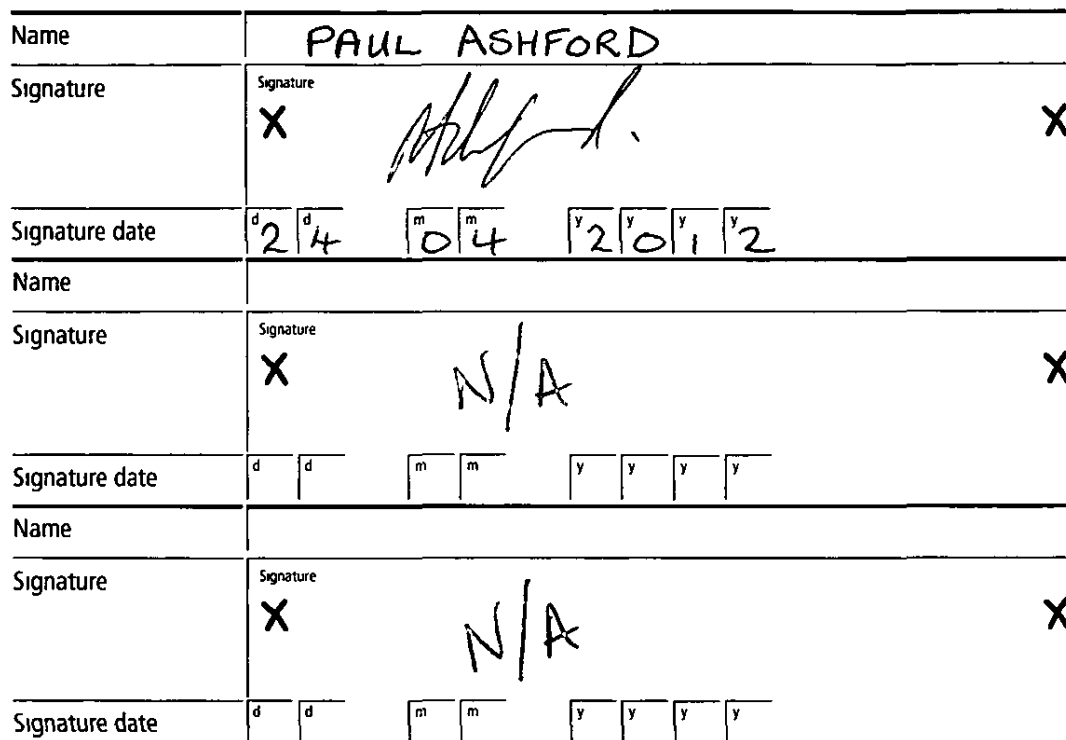 Name PAUL ASHFORD
Signature Signature
X Ashford. X
Signature date d 2 d 4 m 0 m 4 y 2 y 0 y 1 y 2
Name
Signature Signature
X N/A X
Signature date d d m m y y y y
Name
Signature Signature
X N/A X
Signature date d d m m y y y y